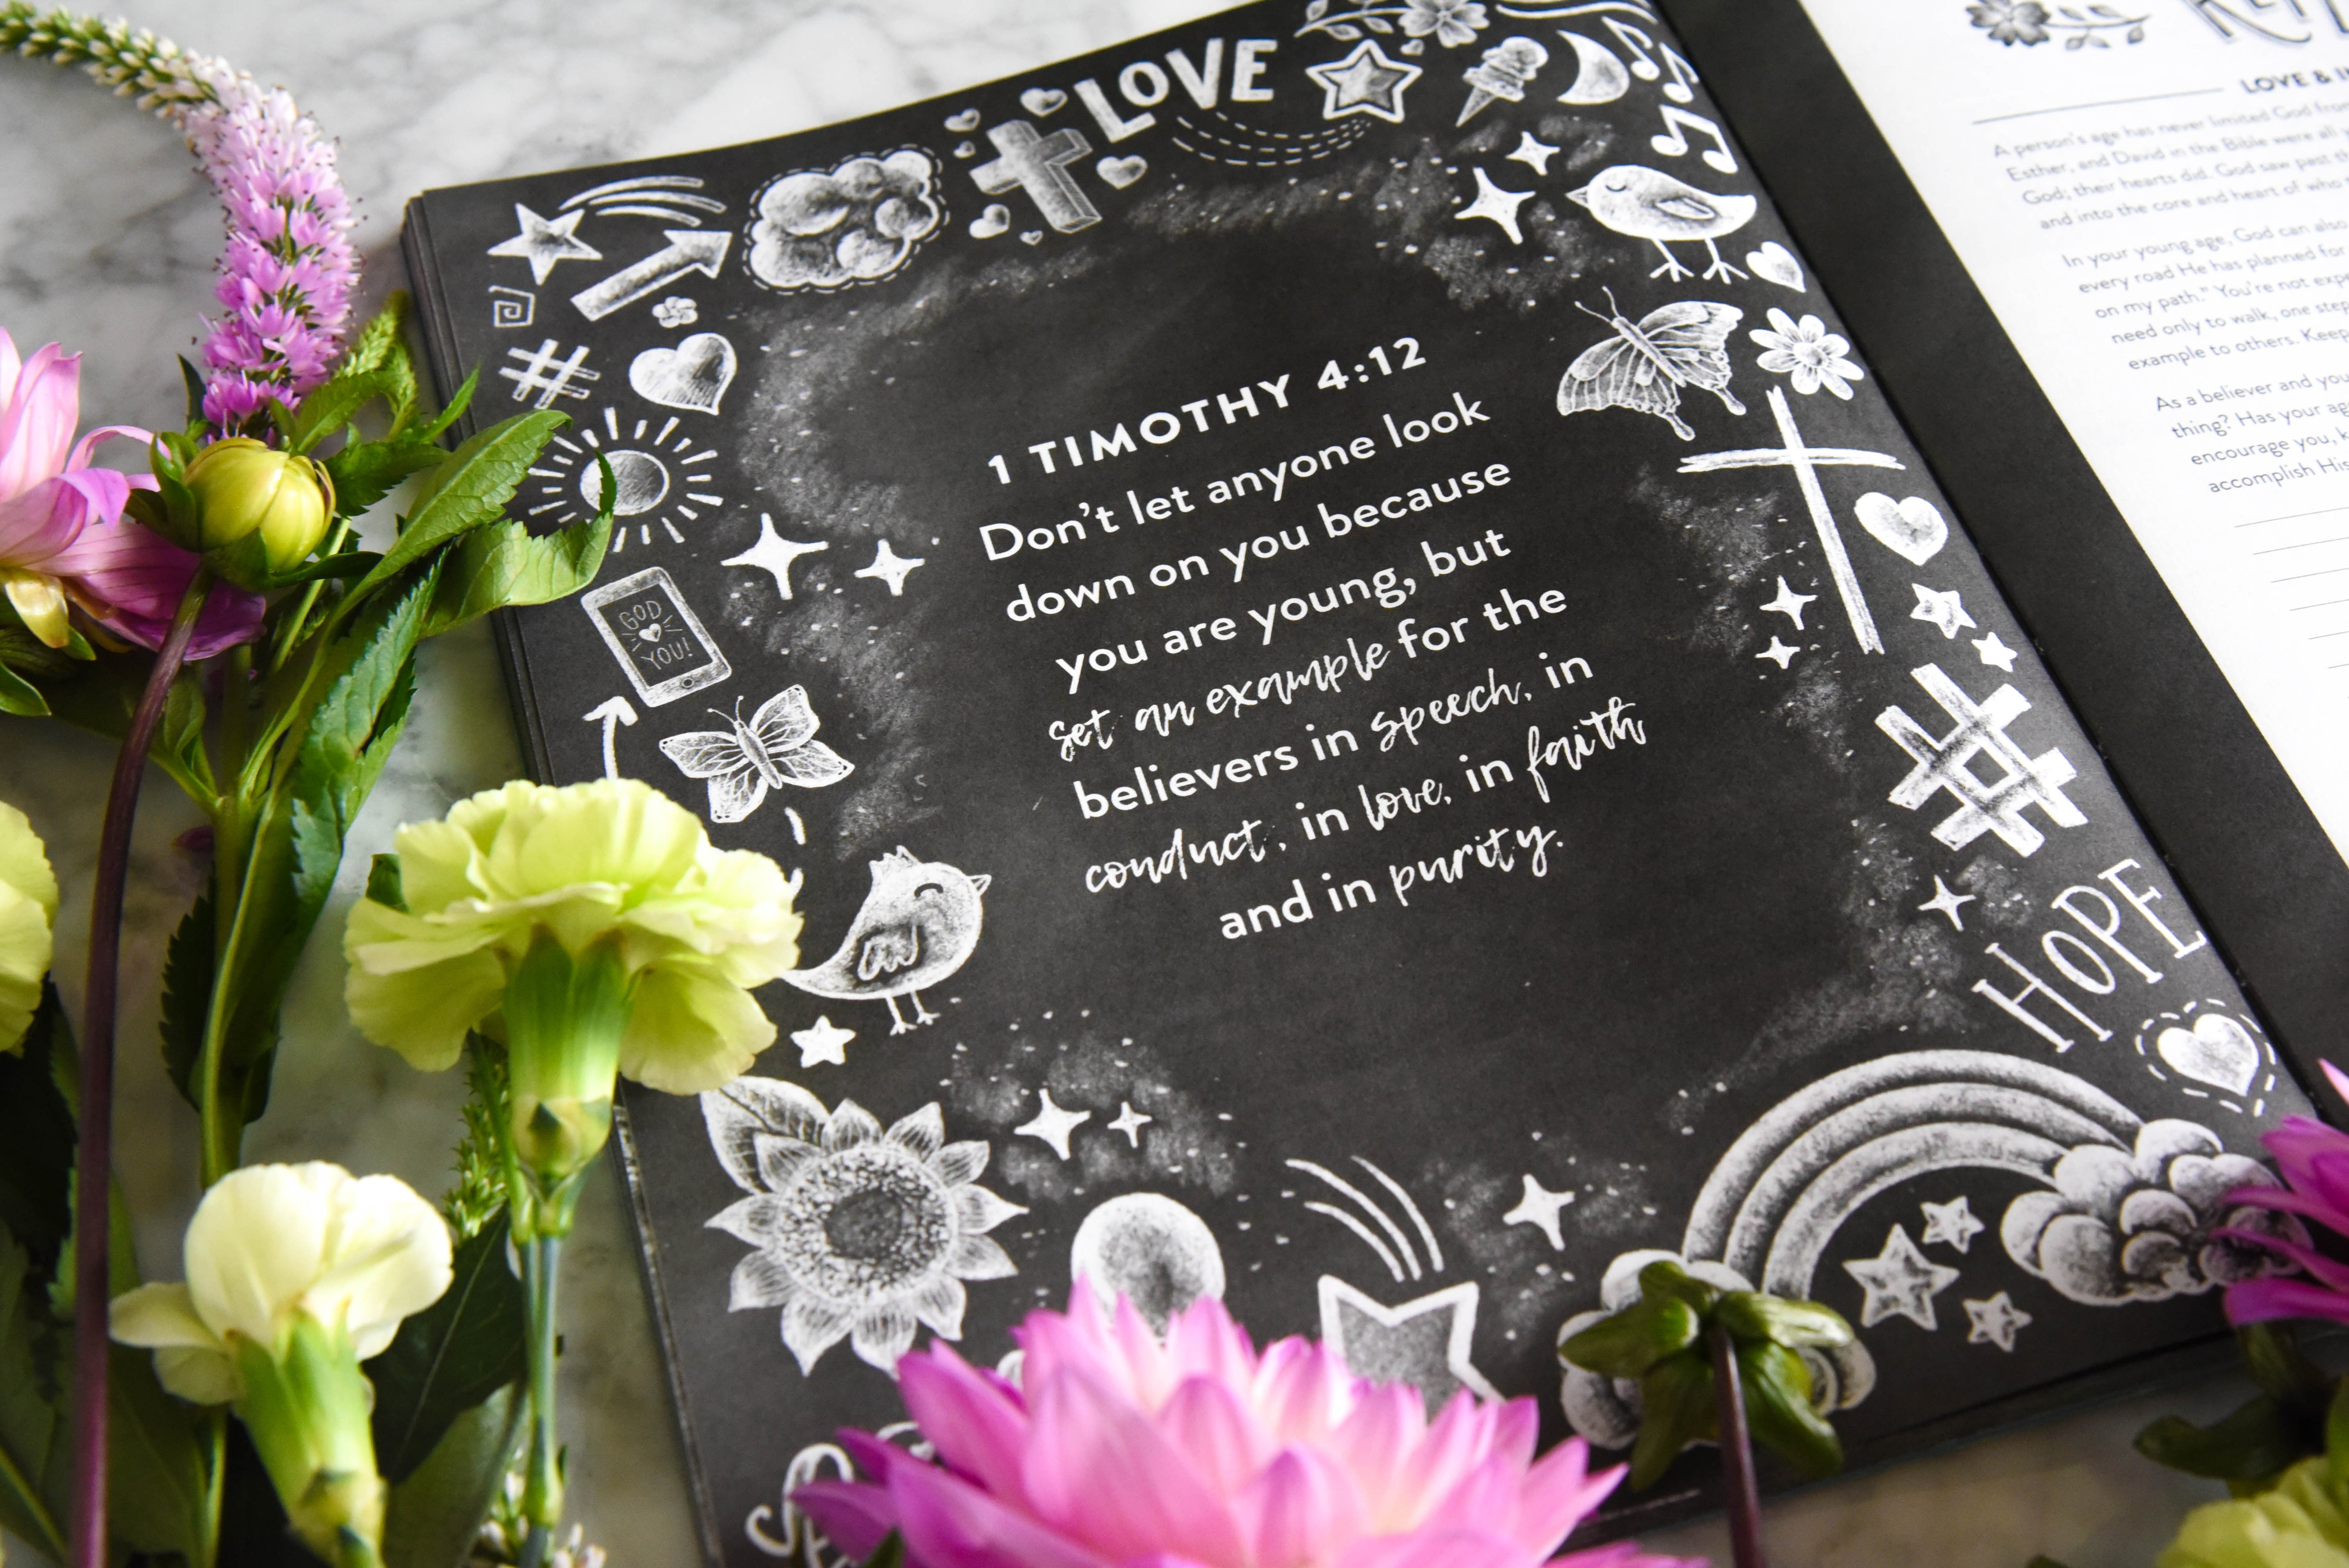 LOVE
1 TIMOTHY 4:12
Don't let anyone look
down on you because
you are young, but
set an example for the
believers in speech, in
conduct, in love, in faith
and in purity.
#
GOD
YOU!
#
HOPE
LOVE &
A person's age has never limited God
Esther, and David in the Bible were all
God; their hearts did. God saw past
and into the core and heart of who
In your young age, God can also
every road He has planned for
on my path." You're not
need only to walk, one
example to others. Keep
As a believer and
thing? Has your
encourage you,
accomplish